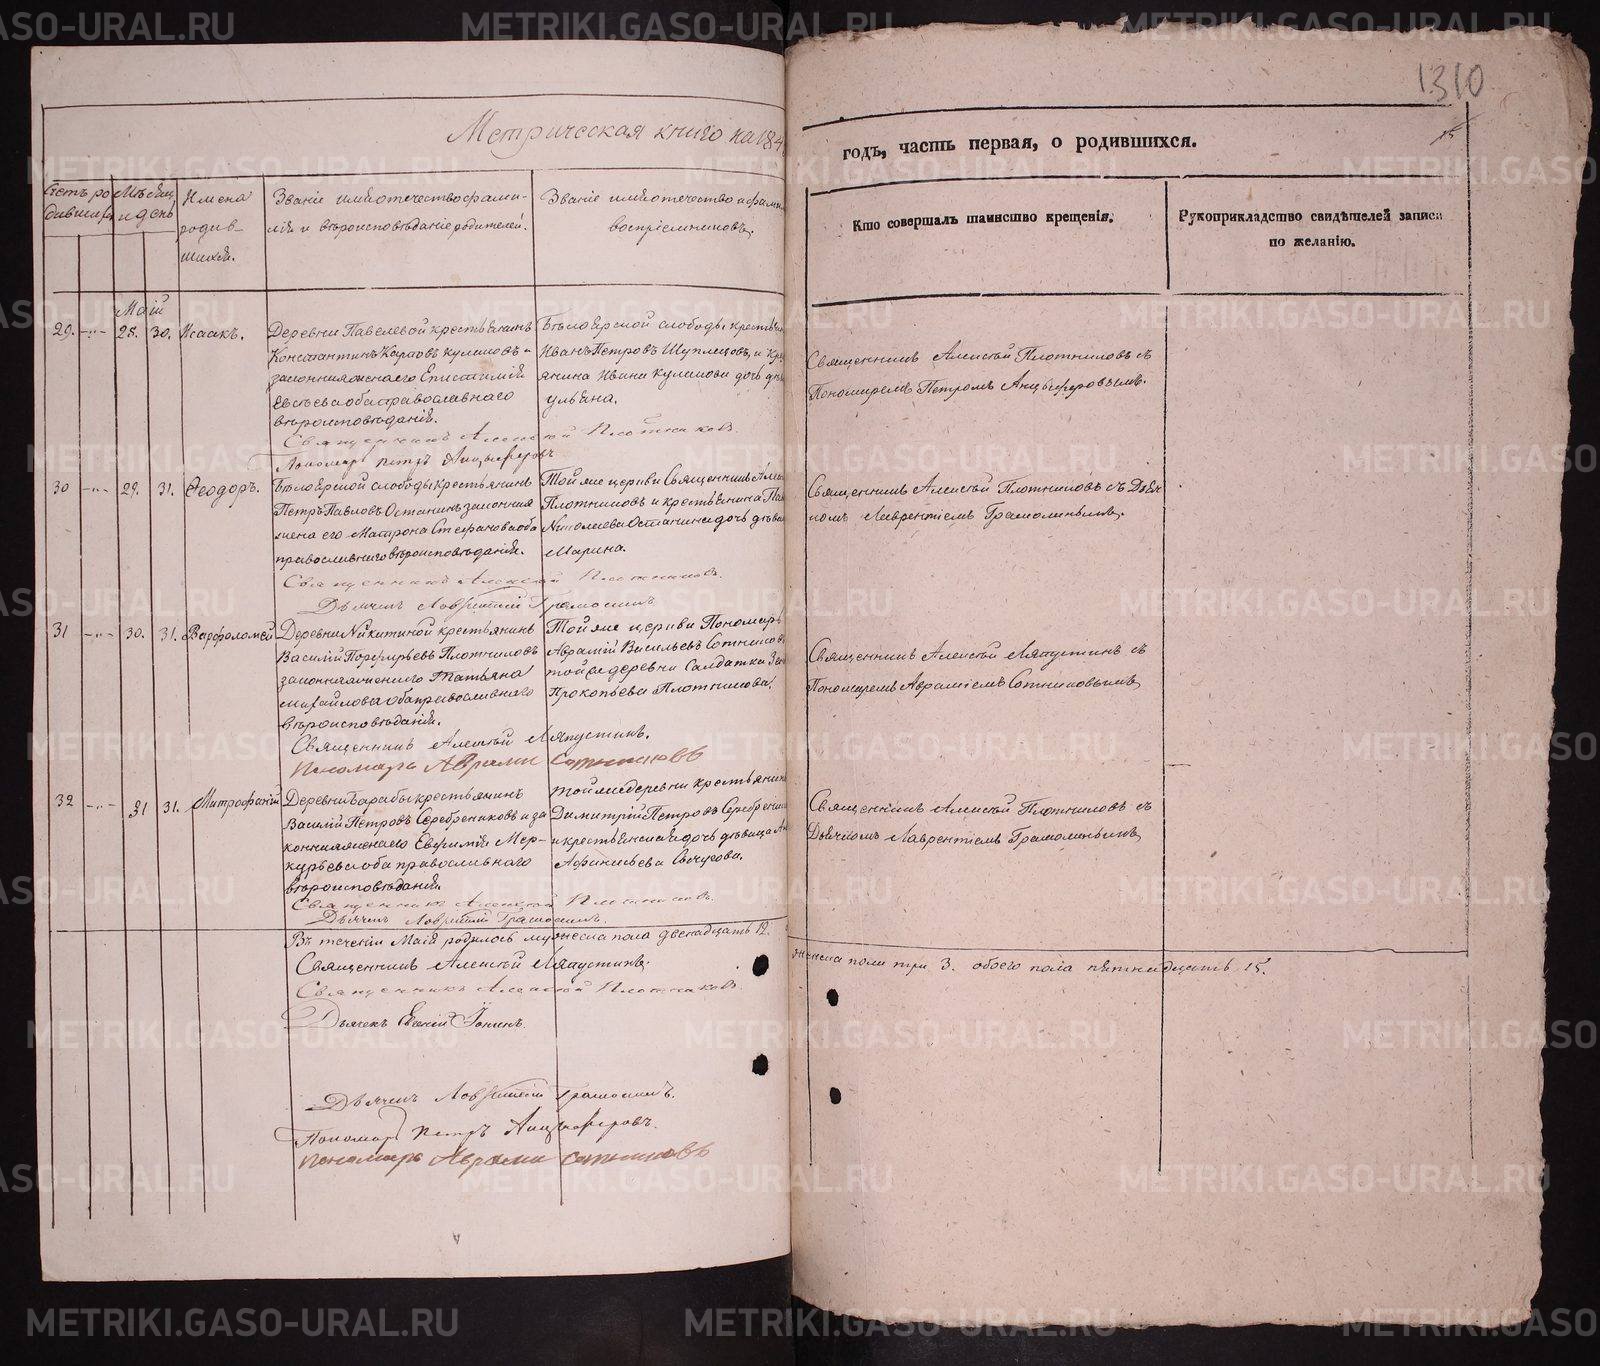 1310
15
Метрическая книга на 184
годъ, часть первая, о родившихся.
Счетъ ро
дившихъ
Мѣсяцъ
и день
Имена
родив-
шихся.
Званіе имя отчество фами-
лія и вѣроисповѣданіе родителей.
Званіе имя отчество и фамилія
воспріемниковъ.
Кто совершалъ таинство крещенія.
Рукоприкладство свидѣтелей записи
по желанію.
Маій
29. -"- 28. 30. Исаакъ.
Деревни Павелевой крестьянинъ
Константинъ Карповъ Кулаковъ и
законная жена его Епистимія
Евсѣева оба православнаго
вѣроисповѣданія.
Священникъ Алексѣй Плотниковъ.
Пономарь Петръ Анцыферовъ
Бѣлоярской слободы крестьян
Иванъ Петровъ Шуплецовъ, и крес
янина Ивана Кулакова дочь дѣв
Ульяна.
Священникъ Алексѣй Плотниковъ съ
Пономаремъ Петромъ Анцыферовымъ.
30 -"- 29. 31. Ѳеодоръ.
Бѣлоярской слободы крестьянинъ
Петръ Павловъ Останинъ законная
жена его Матрона Стефанова оба
православнаго вѣроисповѣданія.
Священникъ Алексѣй Плотниковъ.
Дьячекъ Лаврентій Грамолинъ
Той же церкви Священникъ Алек
Плотниковъ и крестьянина Пав
Николаева Останина дочь дѣвица
Марина.
Священникъ Алексѣй Плотниковъ съ Дьяч
комъ Лаврентіемъ Грамолинымъ.
31 -"- 30. 31. Варфоломей
Деревни Никитиной крестьянинъ
Василій Порфирьевъ Плотниковъ
законная жена его Татьяна
Михайлова оба православнаго
вѣроисповѣданія.
Священникъ Алексѣй Ляпустинъ.
Пономарь Аврамій Сотниковъ
Той же церкви Пономарь
Аврамій Васильевъ Сотниковъ
той же деревни Салдатка
Прокопьева Плотникова.
Священникъ Алексѣй Ляпустинъ съ
Пономаремъ Авраміемъ Сотниковымъ
32 -"- 31 31. Митрофаній
Деревни Барабы крестьянинъ
Василій Петровъ Серебрениковъ и за
конная жена его Евфимія Мер-
курьева оба православнаго
вѣроисповѣданія.
Священникъ Алексѣй Плотниковъ.
Дьячекъ Лаврентій Грамолинъ.
Той же деревни крестьянинъ
Димитрій Петровъ Серебрении
и крестьянская дочь дѣвица
Афанасьева Сычугова.
Священникъ Алексѣй Плотниковъ съ
Дьячкомъ Лаврентіемъ Грамолинымъ
Въ теченіи Маія родилось мужеска пола двенадцать 12.
женска пола три 3. обоего пола пятнадцать 15.
Священникъ Алексѣй Ляпустинъ.
Священникъ Алексѣй Плотниковъ.
Дьячекъ Евгеній Іонинъ.
Дьячекъ Лаврентій Грамолинъ.
Пономарь Петръ Анцыферовъ.
Пономарь Аврамій Сотниковъ
METRIKI.GASO-URAL.RU